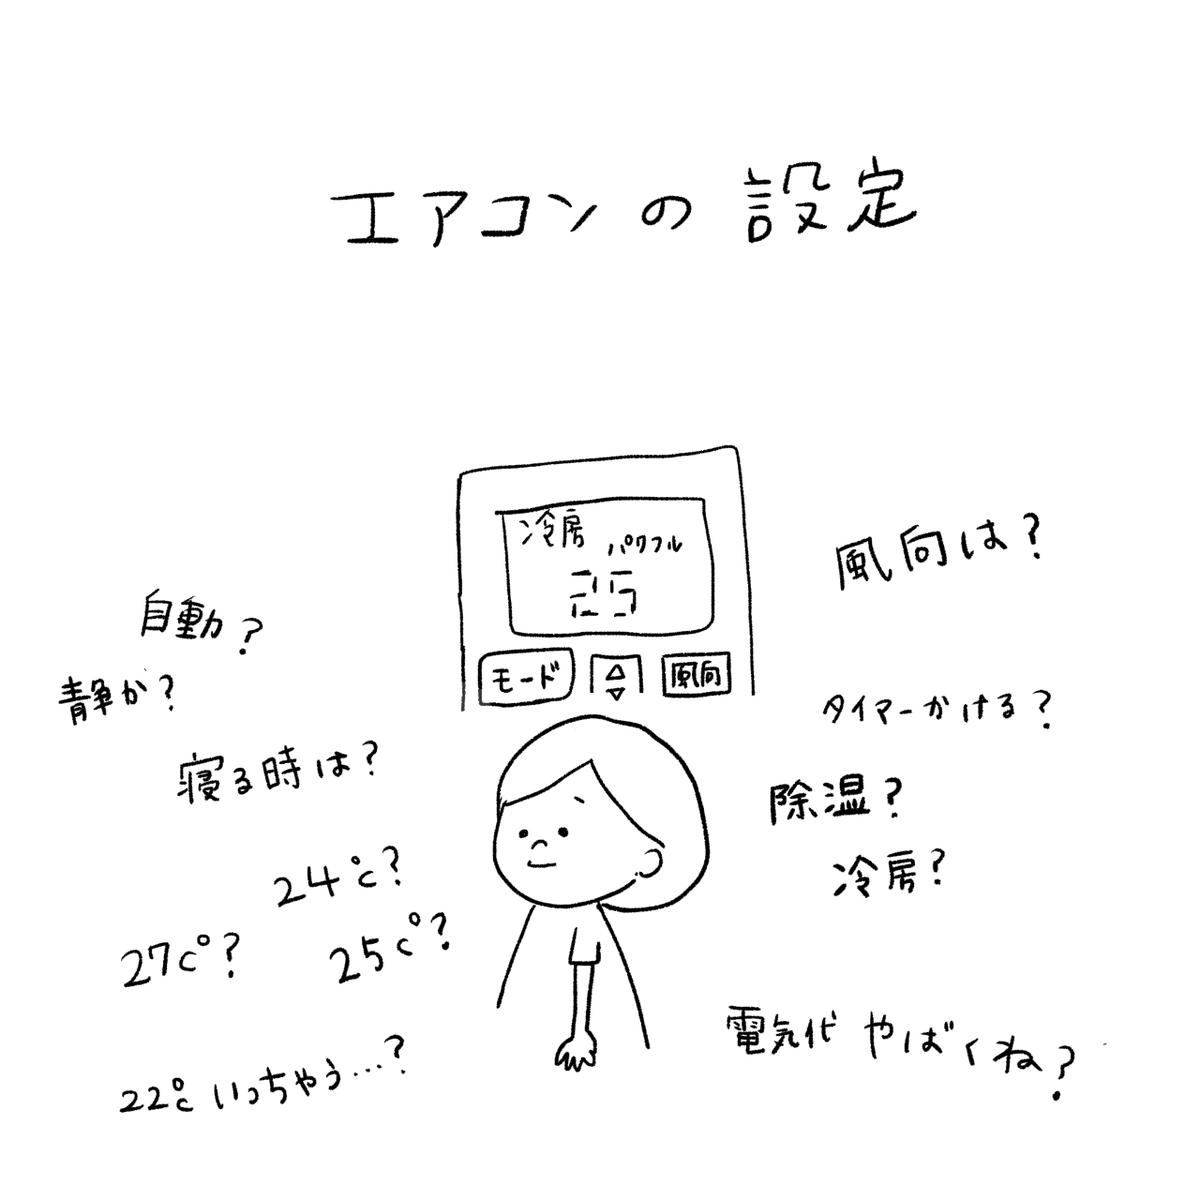 エアコンの設定
冷房 パワフル
25
モード
風向
自動?
静か?
寝る時は?
24℃?
27c°?
25c°?
22℃いっちゃう…?
風向は?
タイマーかける?
除湿?
冷房?
電気代 やばくね?